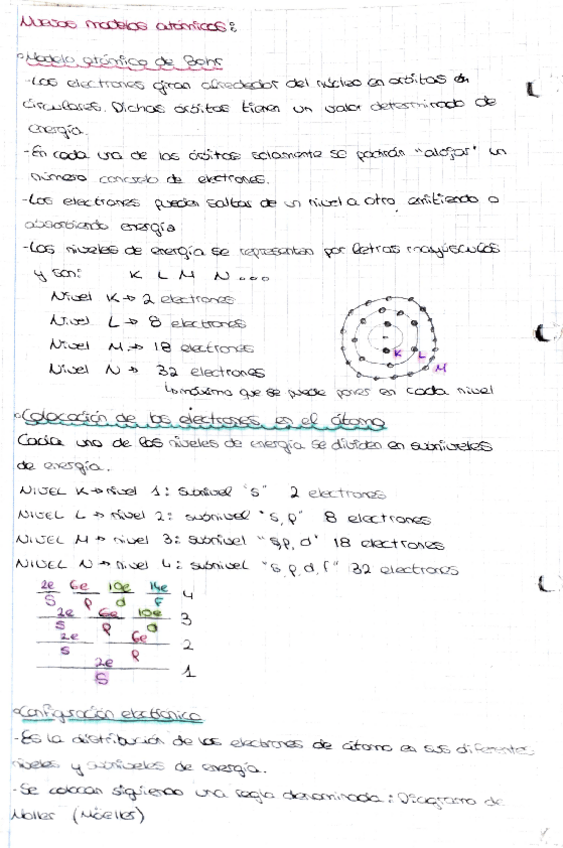 Nuevos modelos atómicos:
°Modelo atómico de Bohr
-Los electrones giran alrededor del núcleo en orbitas en
circulares. Dichas órbitas tienen un valor determinado de
energía.
-En cada una de las órbitas solamente se podrán "alojar" un
número concreto de electrones.
-Los electrones pueden saltar de un nivel a otro, emitiendo o
absorbiendo energía
-Los niveles de energía se representan por letras mayúsculas
y son: K L M N ...
Nivel K → 2 electrones
Nivel L → 8 electrones
Nivel M → 18 electrones
Nivel N → 32 electrones
K L M
↳máximo que se puede poner en cada nivel
°Colocación de los electrones en el átomo
Cada uno de los niveles de energía se dividen en subniveles
de energía.
NIVEL K → nivel 1: subnivel "s" 2 electrones
NIVEL L → nivel 2: subnivel "s, p" 8 electrones
NIVEL M → nivel 3: subnivel "s, p, d" 18 electrones
NIVEL N → nivel 4: subnivel "s, p, d, f" 32 electrones
2e 6e 10e 14e
S P d F 4
2e 6e 10e
S P d 3
2e 6e
S P 2
2e
S 1
°Configuración electrónica
-Es la distribución de los electrones de átomo en sus diferentes
niveles y subniveles de energía.
-Se colocan siguiendo una regla denominada: Diagrama de
Moller (Möeller)